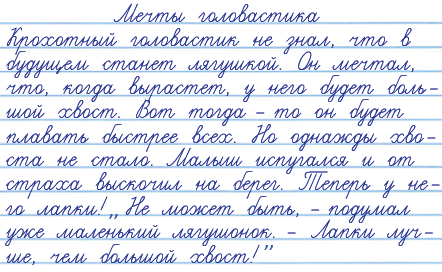 Мечты головастика
Крохотный головастик не знал, что в
будущем станет лягушкой. Он мечтал,
что, когда вырастет, у него будет боль-
шой хвост. Вот тогда - то он будет
плавать быстрее всех. Но однажды хво-
ста не стало. Малыш испугался и от
страха выскочил на берег. Теперь у не-
го лапки! „Не может быть, - подумал
уже маленький лягушонок. - Лапки луч-
ше, чем большой хвост!”